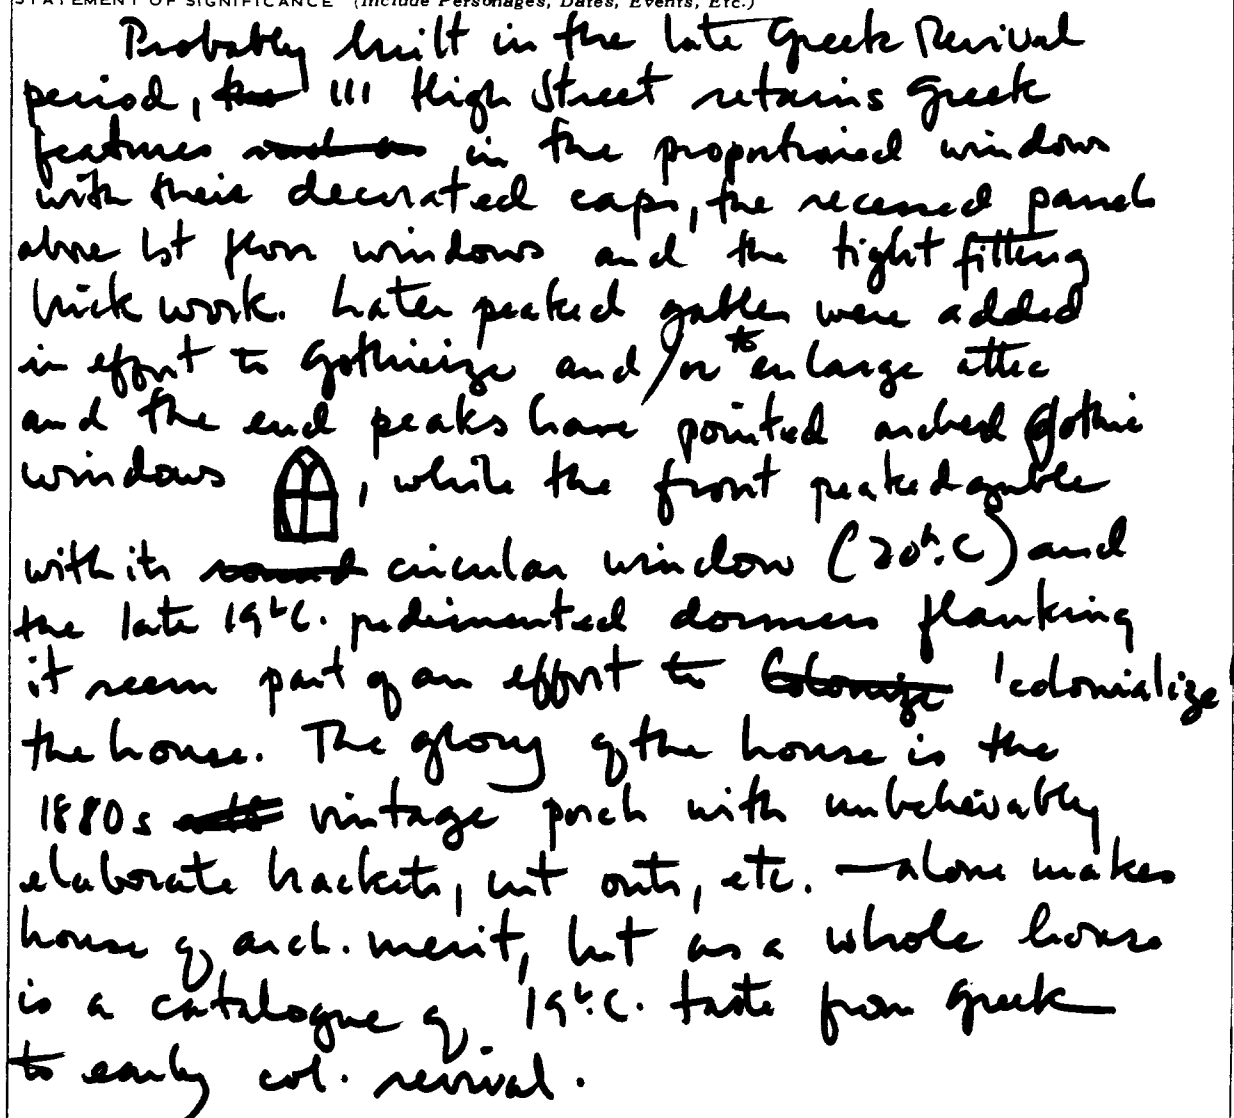 STATEMENT OF SIGNIFICANCE (Include Personages, Dates, Events, Etc.)
Probably built in the late Greek Revival
period, 111 High Street retains Greek
features in the proportioned windows
with their decorated caps, the recessed panels
above 1st floor windows and the tight fitting
brick work. Later peaked gables were added
in effort to Gothicize and/or to enlarge attic
and the end peaks have pointed arched Gothic
windows , while the front peaked gable
with its round circular window (20th.C) and
the late 19th C. pedimented dormers flanking
it seem part of an effort to Colonize 'colonialize
the house. The glory of the house is the
1880s vintage porch with unbelievably
elaborate brackets, cut outs, etc. — alone makes
house of arch. merit, but as a whole house
is a catalogue of 19th.C. taste from Greek
to early col. revival.